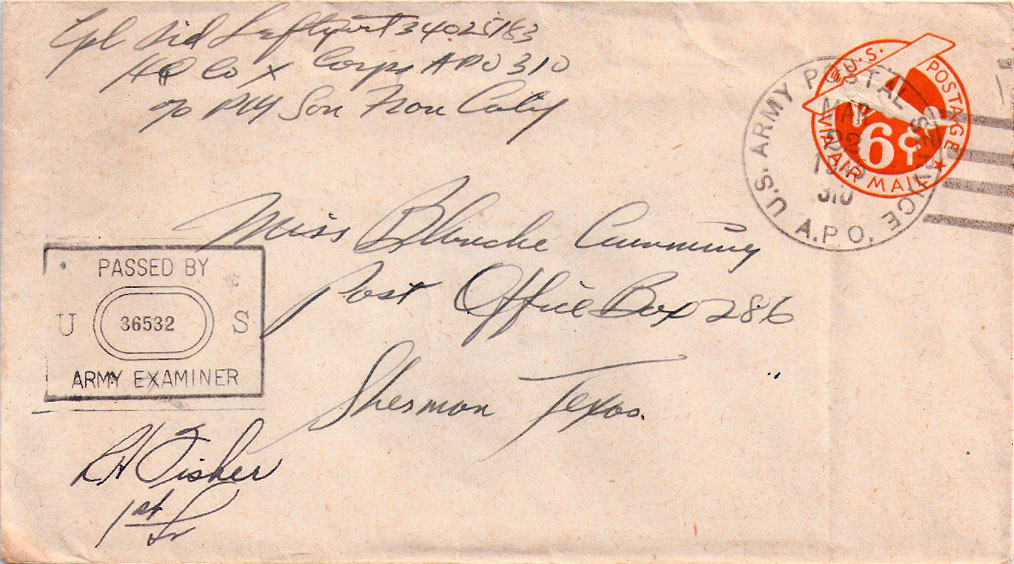 Cpl Sid 34025183
HQ Co X Corps APO 310
c/o PM San Fran Calif
U.S. POSTAGE
VIA AIR MAIL
6¢
U.S. ARMY POSTAL SERVICE
MAR
22
310
A.P.O.
Miss Blanche Cumming
Post Office Box 286
Sherman Texas.
PASSED BY
U 36532 S
ARMY EXAMINER
RH Fisher
1st Lt